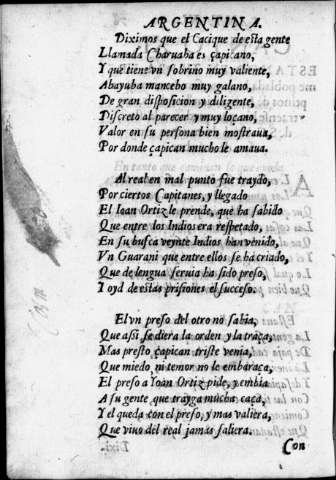 ARGENTINA.
Diximos que el Cacique de esta gente
Llamada Charuaha es çapicano,
Y que tiene vn sobrino muy valiente,
Abayuba mancebo muy galano,
De gran disposicion y diligente,
Discreto al parecer y muy loçano,
Valor en su persona bien mostraua,
Por donde çapican mucho le amaua.
Al real en mal punto fue traydo,
Por ciertos Capitanes, y llegado
El Ioan Ortiz le prende, que ha sabido
Que entre los Indios era respetado,
En su busca veynte Indios han venido,
Vn Guarani que entre ellos se ha criado,
Que de lengua seruia ha sido preso,
Y oyd de estas prisiones el succeso.
El vn preso del otro no sabia,
Que assi se diera la orden y la traça,
Mas presto çapican triste venia,
Que miedo ni temor no le embaraça,
El preso a Ioan Ortiz pide, y embia
A su gente que trayga mucha caça,
Y el queda con el preso, y mas valiera,
Que viuo del real jamas saliera.
Con